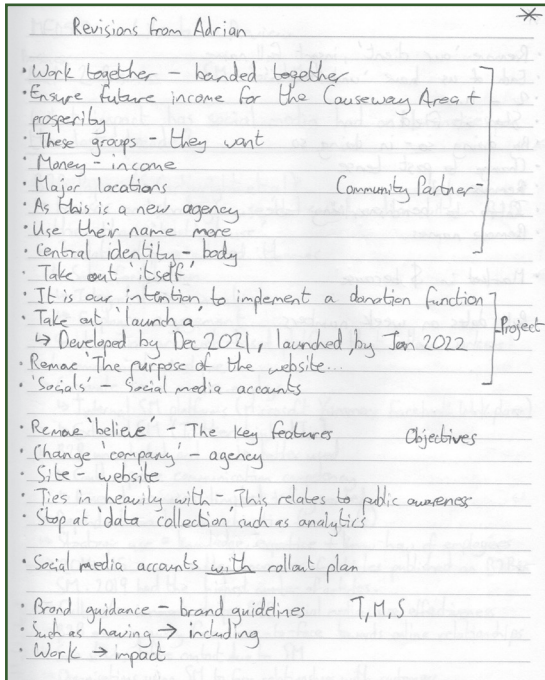 Revisions from Adrian
• Work together – banded together
• Ensure future income for the Causeway Area +
prosperity
• These groups – they want
• Money – income
• Major locations
Community Partner –
• As this is a new agency
• Use their name more
• Central identity – body
• Take out 'itself'
• It is our intention to implement a donation function
• Take out 'launch a'
Project
↳ Developed by Dec 2021, launched by Jan 2022
• Remove 'The purpose of the website...
• 'Socials' – Social media accounts
• Remove 'believe' – The key features
Objectives
• Change 'company' – agency
• Site – website
• Ties in heavily with – This relates to public awareness
• Stop at 'data collection' such as analytics
• Social media accounts with rollout plan
• Brand guidance – brand guidelines
T, M, S
• Such as having → including
• Work → impact